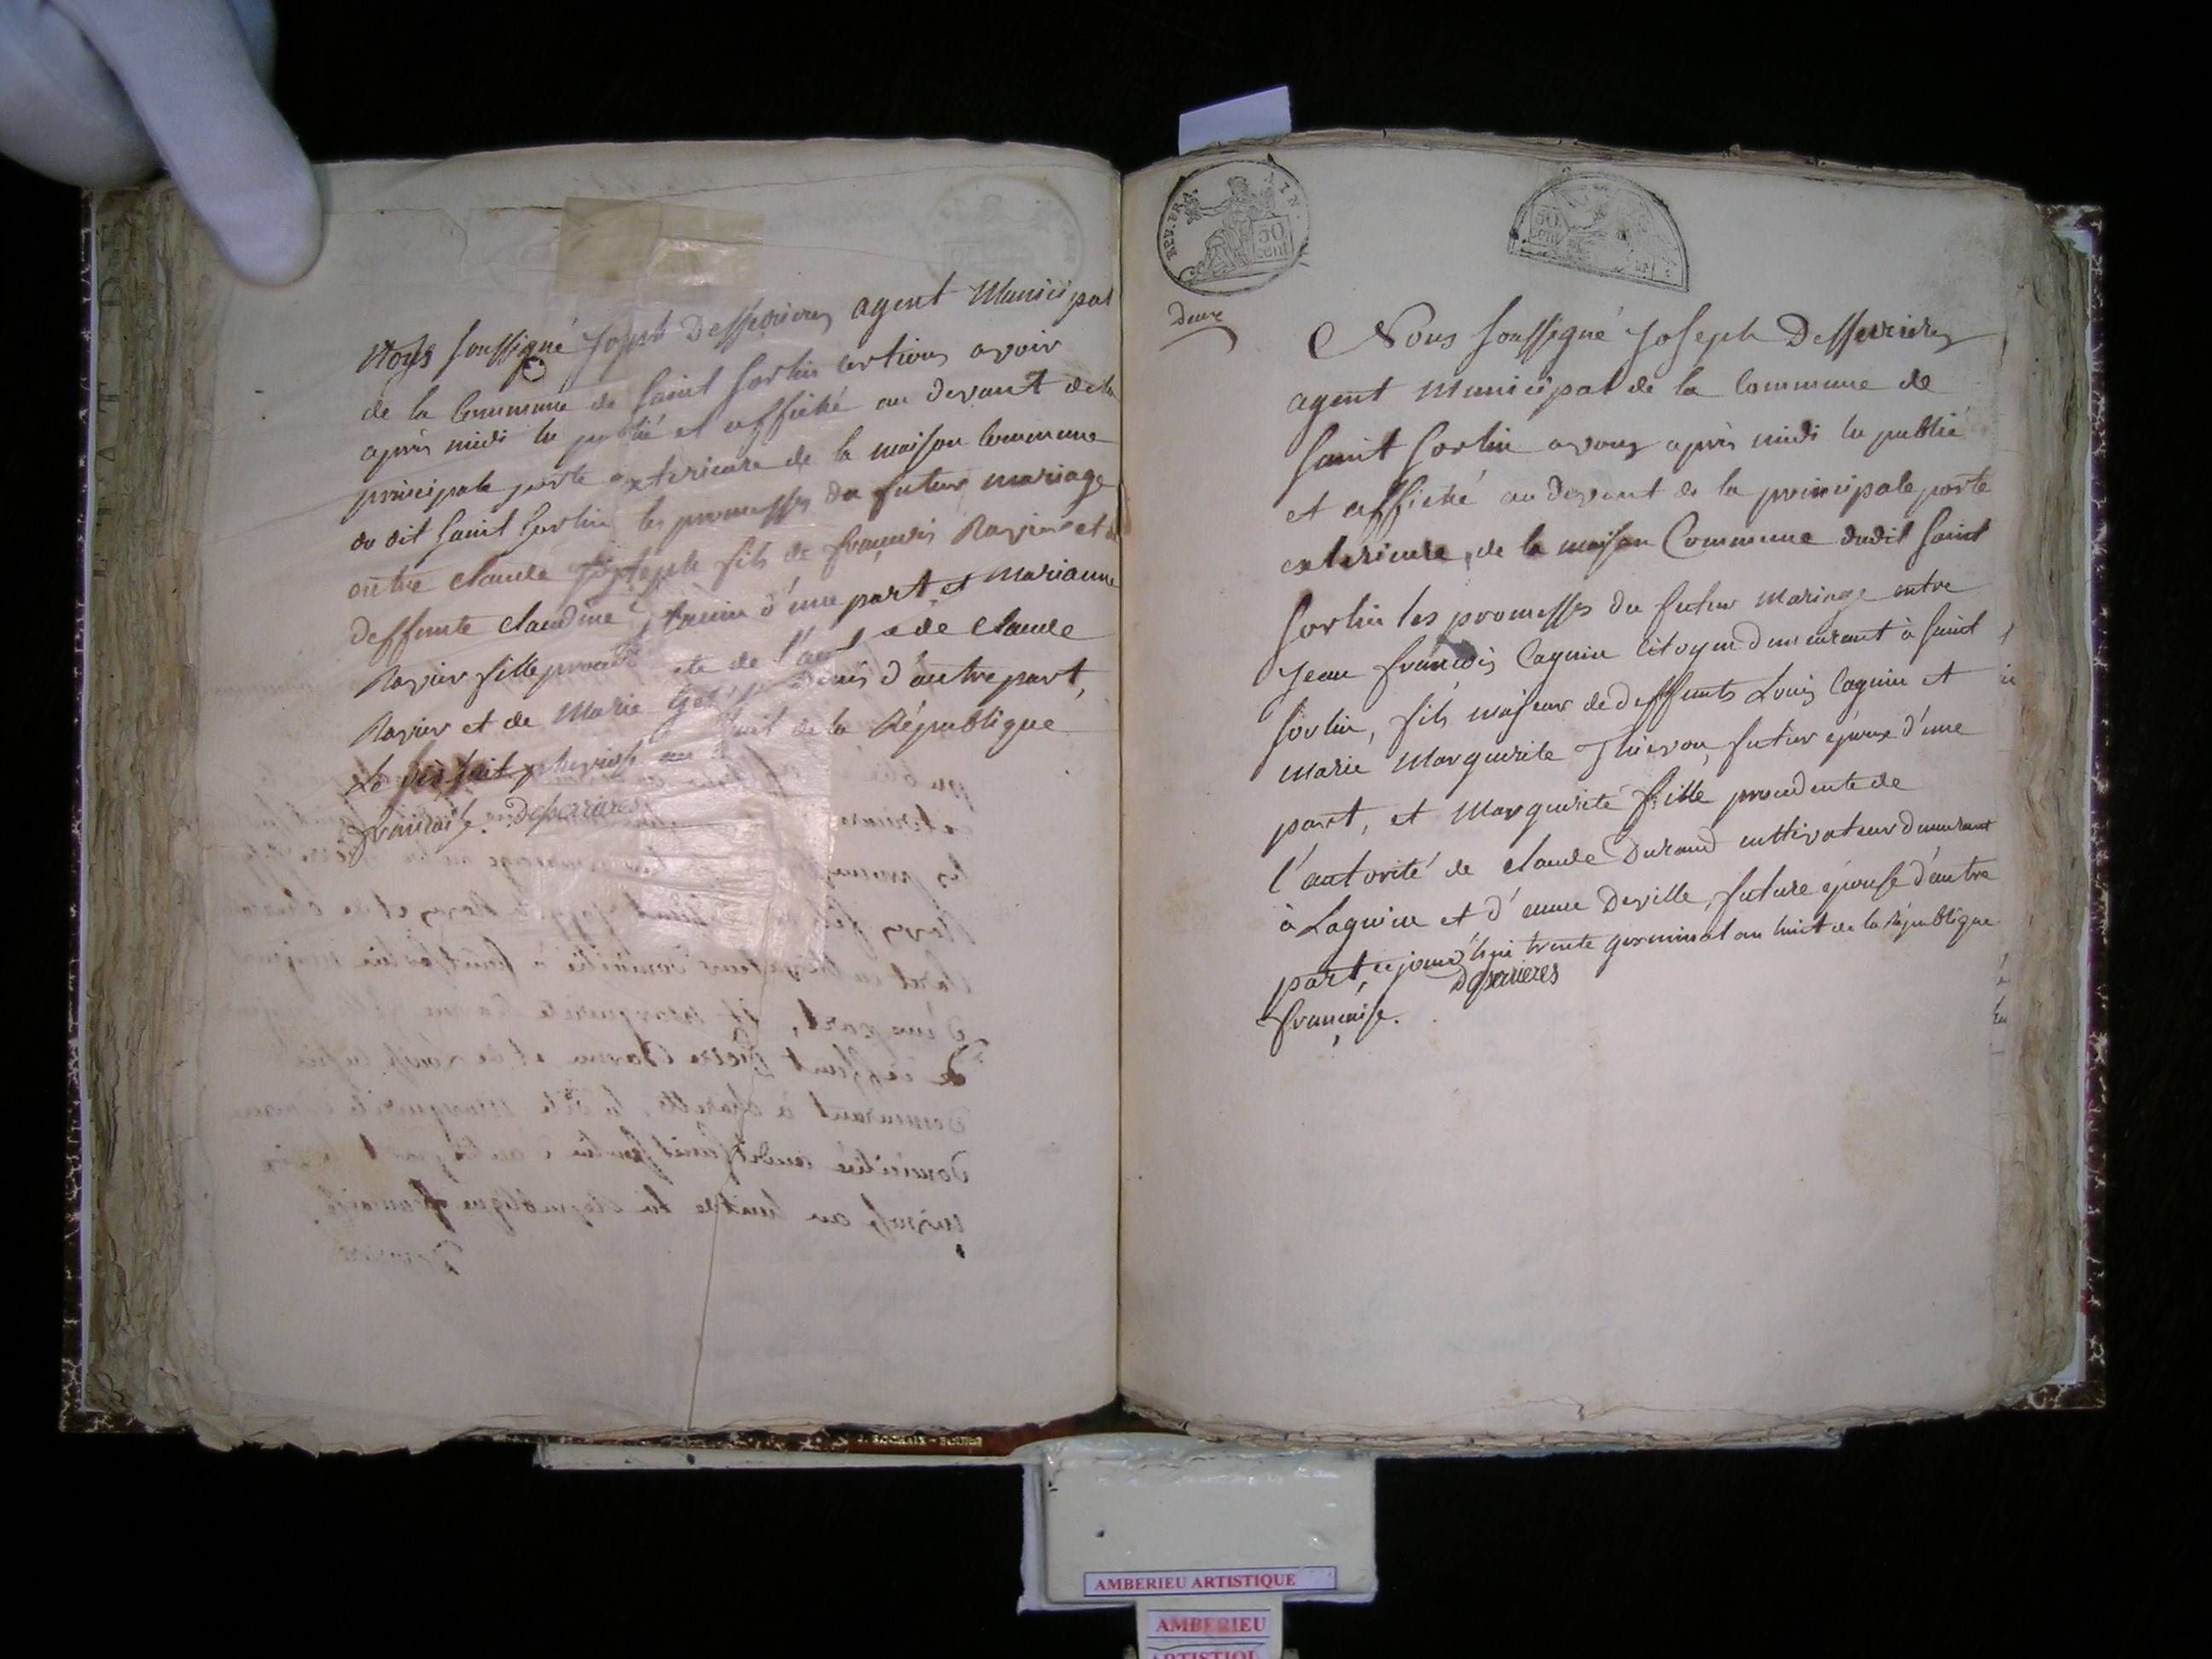 Nous soussigné Joseph Desserrieres agent Municipal
de la Commune de Saint Sorlin certions avoir
après midi lu publié et affiché au devant de la
principale porte exterieure de la maison Commune
du dit Saint Sorlin les promesses du futur mariage
entre claude joseph fils de françois Ravier et de
deffunte claudine d'une part et marianne
Ravier fille de l'autorité de claude
Ravier et de Marie d'autre part,
Le dix huit an huit de la République
française. Desserrieres
REP. FRA
50
cent
50
cent
Deux
Nous soussigné Joseph Desserrieres
agent Municipal de la Commune de
Saint Sorlin avons après midi lu publié
et affiché au devant de la principale porte
exterieure de la maison Commune dudit Saint
Sorlin les promesses du futur Mariage entre
Jean françois Cagnin Citoyen demeurant à Saint
Sorlin, fils majeur de deffunts Louis Cagnin et
marie Marguerite Thievon, futur époux d'une
part, et Marguerite fille procedente de
l'autorité de claude Durand cultivateur demeurant
à Lagnieu et d'anne Deville, future épouse d'autre
part, ce jourd'hui trente germinal an huit de la République
française. Desserrieres
AMBERIEU ARTISTIQUE
AMBERIEU
ARTISTIQUE